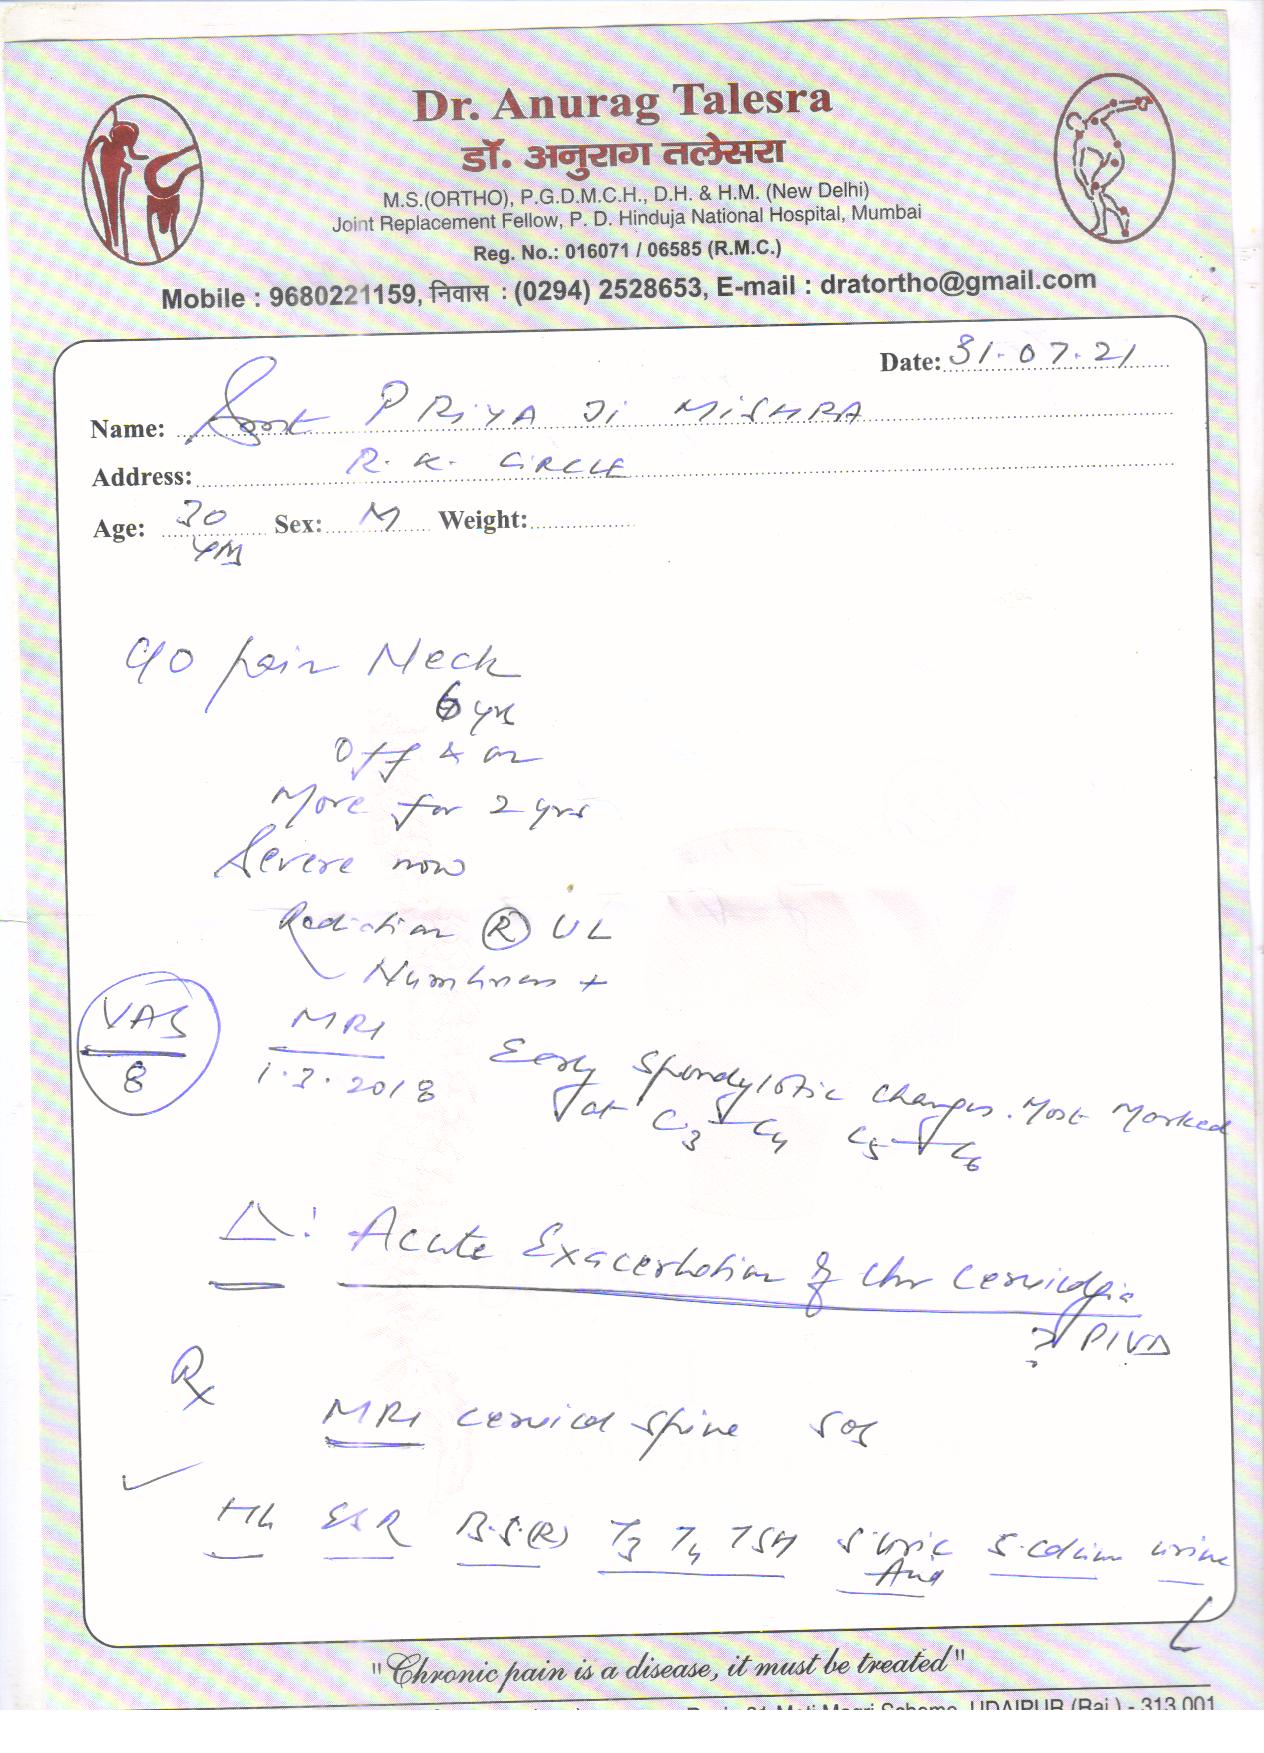 Dr. Anurag Talesra
डॉ. अनुराग तलेसरा
M.S.(ORTHO), P.G.D.M.C.H., D.H. & H.M. (New Delhi)
Joint Replacement Fellow, P. D. Hinduja National Hospital, Mumbai
Reg. No.: 016071 / 06585 (R.M.C.)
Mobile : 9680221159, निवास : (0294) 2528653, E-mail : dratortho@gmail.com
Date: 31.07.21
Name: PRIYA JI MISHRA
Address: R.K. CIRCLE
Age: 30 Sex: M Weight:
yrs
C/O pain Neck
6 yrs
Off & on
More for 2 yrs
Severe now
Radiation R UL
Numbness +
VAS MRI
8 1.3.2018 Early Spondylotic changes. Most Marked
at C3 C4 C5 C6
Δ: Acute Exacerbation of Chr Cervicalgia
? PIVD
Rx
MRI Cervical Spine SOS
Hb ESR B.S.(R) T3 T4 TSH S. Uric S. Calcium Urine
Acid
"Chronic pain is a disease, it must be treated"
UDAIPUR (Raj.) - 313 001